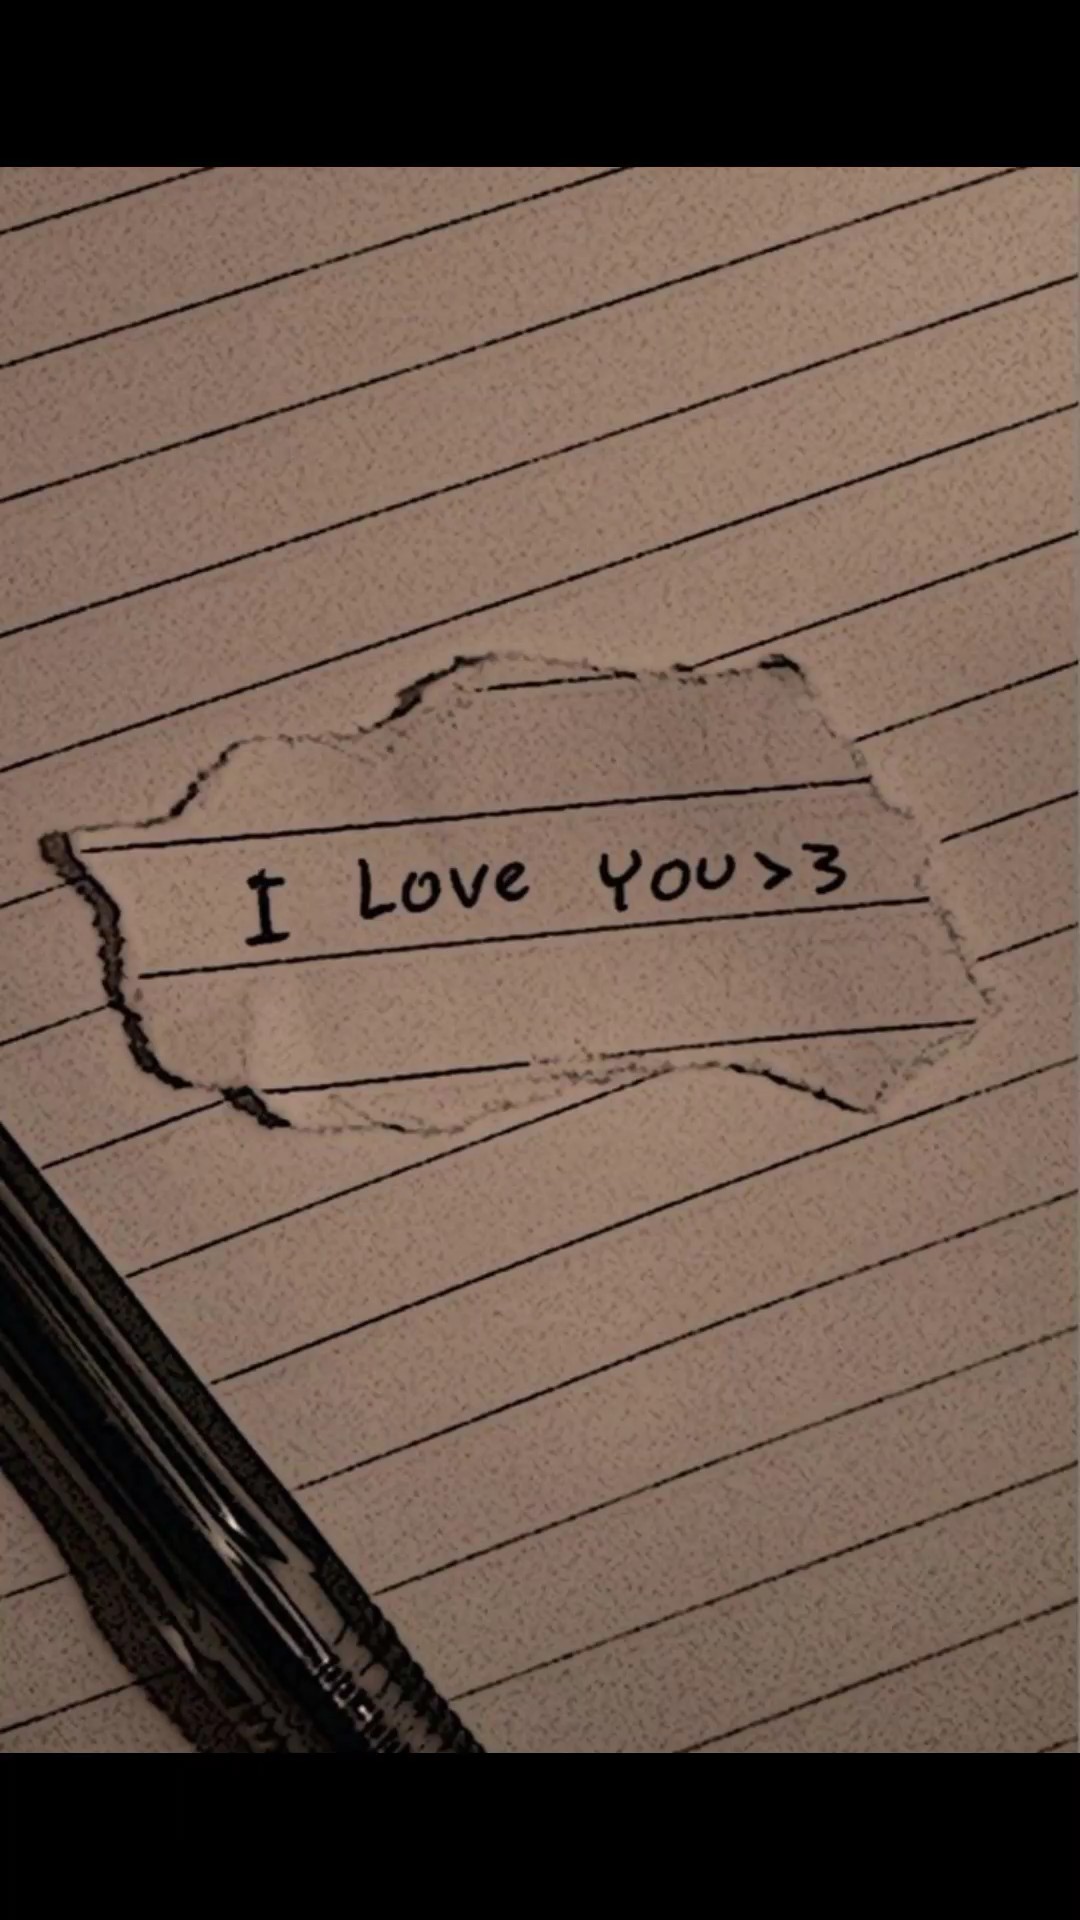 I Love YOU>3